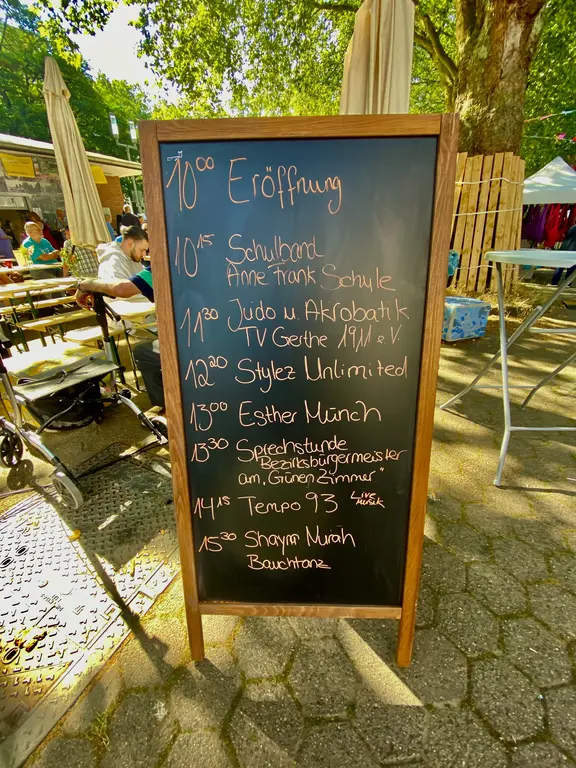 10⁰⁰ Eröffnung
10¹⁵ Schulband
Anne Frank Schule
11³⁰ Judo u. Akrobatik
TV Gerthe 1911 e.V.
12²⁰ Stylez Unlimited
13⁰⁰ Esther Münch
13³⁰ Sprechstunde
Bezirksbürgermeister
am „Günen Zimmer"
14¹⁵ Tempo 93 Live Musik
15³⁰ Shaym Murah
Bauchtanz